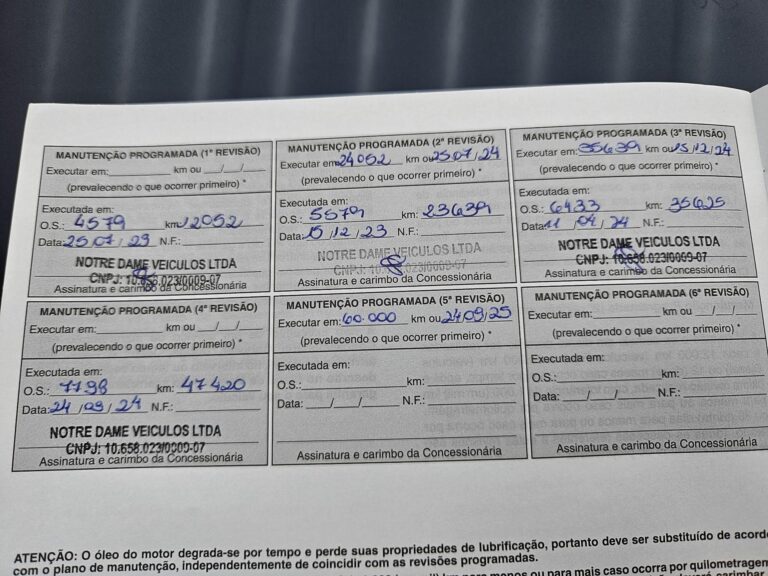 MANUTENÇÃO PROGRAMADA (1ª REVISÃO)
Executar em:__________ km ou ___/___/___
(prevalecendo o que ocorrer primeiro) *
Executada em:
O.S.: 4579 km: 12052
Data: 25/07/23 N.F.:
NOTRE DAME VEICULOS LTDA
CNPJ: 10.658.023/0009-07
Assinatura e carimbo da Concessionária
MANUTENÇÃO PROGRAMADA (2ª REVISÃO)
Executar em: 24052 km ou 25/07/24
(prevalecendo o que ocorrer primeiro) *
Executada em:
O.S.: 5579 km: 23639
Data: 15/12/23 N.F.:
NOTRE DAME VEICULOS LTDA
CNPJ: 10.658.023/0009-07
Assinatura e carimbo da Concessionária
MANUTENÇÃO PROGRAMADA (3ª REVISÃO)
Executar em: 35639 km ou 15/12/24
(prevalecendo o que ocorrer primeiro) *
Executada em:
O.S.: 6433 km: 35625
Data: 11/04/24 N.F.:
NOTRE DAME VEICULOS LTDA
CNPJ: 10.658.023/0009-07
Assinatura e carimbo da Concessionária
MANUTENÇÃO PROGRAMADA (4ª REVISÃO)
Executar em:__________ km ou ___/___/___
(prevalecendo o que ocorrer primeiro) *
Executada em:
O.S.: 7198 km: 47420
Data: 24/09/24 N.F.:
NOTRE DAME VEICULOS LTDA
CNPJ: 10.658.023/0009-07
Assinatura e carimbo da Concessionária
MANUTENÇÃO PROGRAMADA (5ª REVISÃO)
Executar em: 60.000 km ou 24/09/25
(prevalecendo o que ocorrer primeiro) *
Executada em:
O.S.:__________ km:__________
Data: ___/___/___ N.F.:
Assinatura e carimbo da Concessionária
MANUTENÇÃO PROGRAMADA (6ª REVISÃO)
Executar em:__________ km ou ___/___/___
(prevalecendo o que ocorrer primeiro) *
Executada em:
O.S.:__________ km:__________
Data: ___/___/___ N.F.:
Assinatura e carimbo da Concessionária
ATENÇÃO: O óleo do motor degrada-se por tempo e perde suas propriedades de lubrificação, portanto deve ser substituído de acord
com o plano de manutenção, independentemente de coincidir com as revisões programadas.
km para menos ou para mais caso ocorra por quilometragem